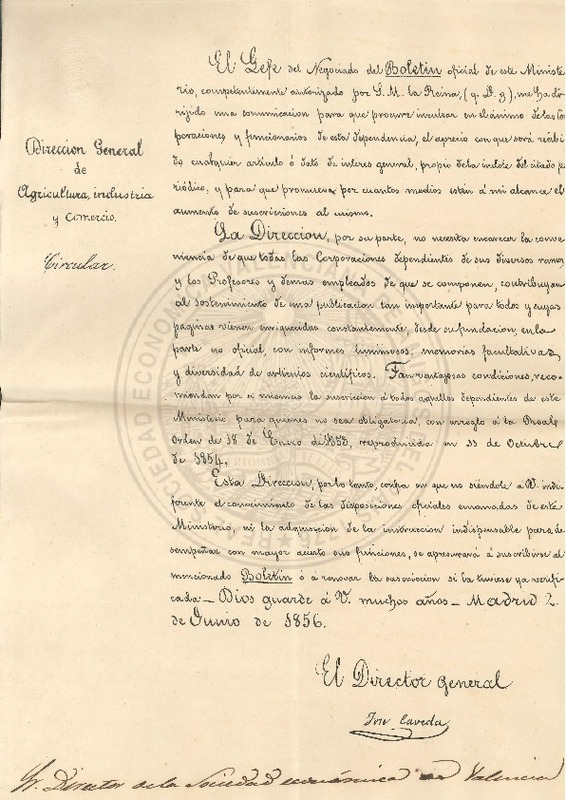 Direccion General
de
Agricultura, industria
y Comercio.
Circular.
El Gefe del Negociado del Boletin oficial de este Ministe
rio, competentemente autorizado por S. M. la Reina, (q. D. g), me ha di
rijido una comunicacion para que procure inculcar en el ánimo de las Cor
poraciones y funcionarios de esta dependencia, el aprecio con que será recibi
do cualquier articulo ó dato de interes general, propio de la indole del citado pe
riódico, y para que promueva por cuantos medios estén á mi alcance el
aumento de suscriciones al mismo.
La Direccion, por su parte, no necesita encarecer la conve
niencia de que todas las Corporaciones dependientes de sus diversos ramos
y los Profesores y demas empleados de que se componen, contribuyan
al sostenimiento de una publicacion tan importante para todos y cuyas
paginas vienen enriquecidas constantemente, desde su fundacion, en la
parte no oficial con informes luminosos, memorias facultativas,
y diversidad de articulos cientificos. Tan vantajosas condiciones, reco-
miendan por si mismas la suscricion á todos aquellos dependientes de este
Ministerio para quienes no sea obligatoria, con arreglo á la Real
Orden de 18 de Enero de 1853, reproducida en 11 de Octubre
de 1854.
Esta Direccion, por lo tanto, confia en que no siéndole á V. indi
ferente el conocimiento de las disposiciones oficiales emanadas de este
Ministerio, ni la adquisicion de la instruccion indispensable para de
sempeñar con mayor acierto sus funciones, se apresurará á suscribirse al
mencionado Boletin ó á renovar la suscricion si la tuviese ya verifi
cada_ Dios guarde á V. muchos años_ Madrid 2
de Junio de 1856.
El Director general
Caveda
Sr. Director de la Sociedad económica de Valencia
REAL SOCIEDAD ECONOMICA VALENCIA